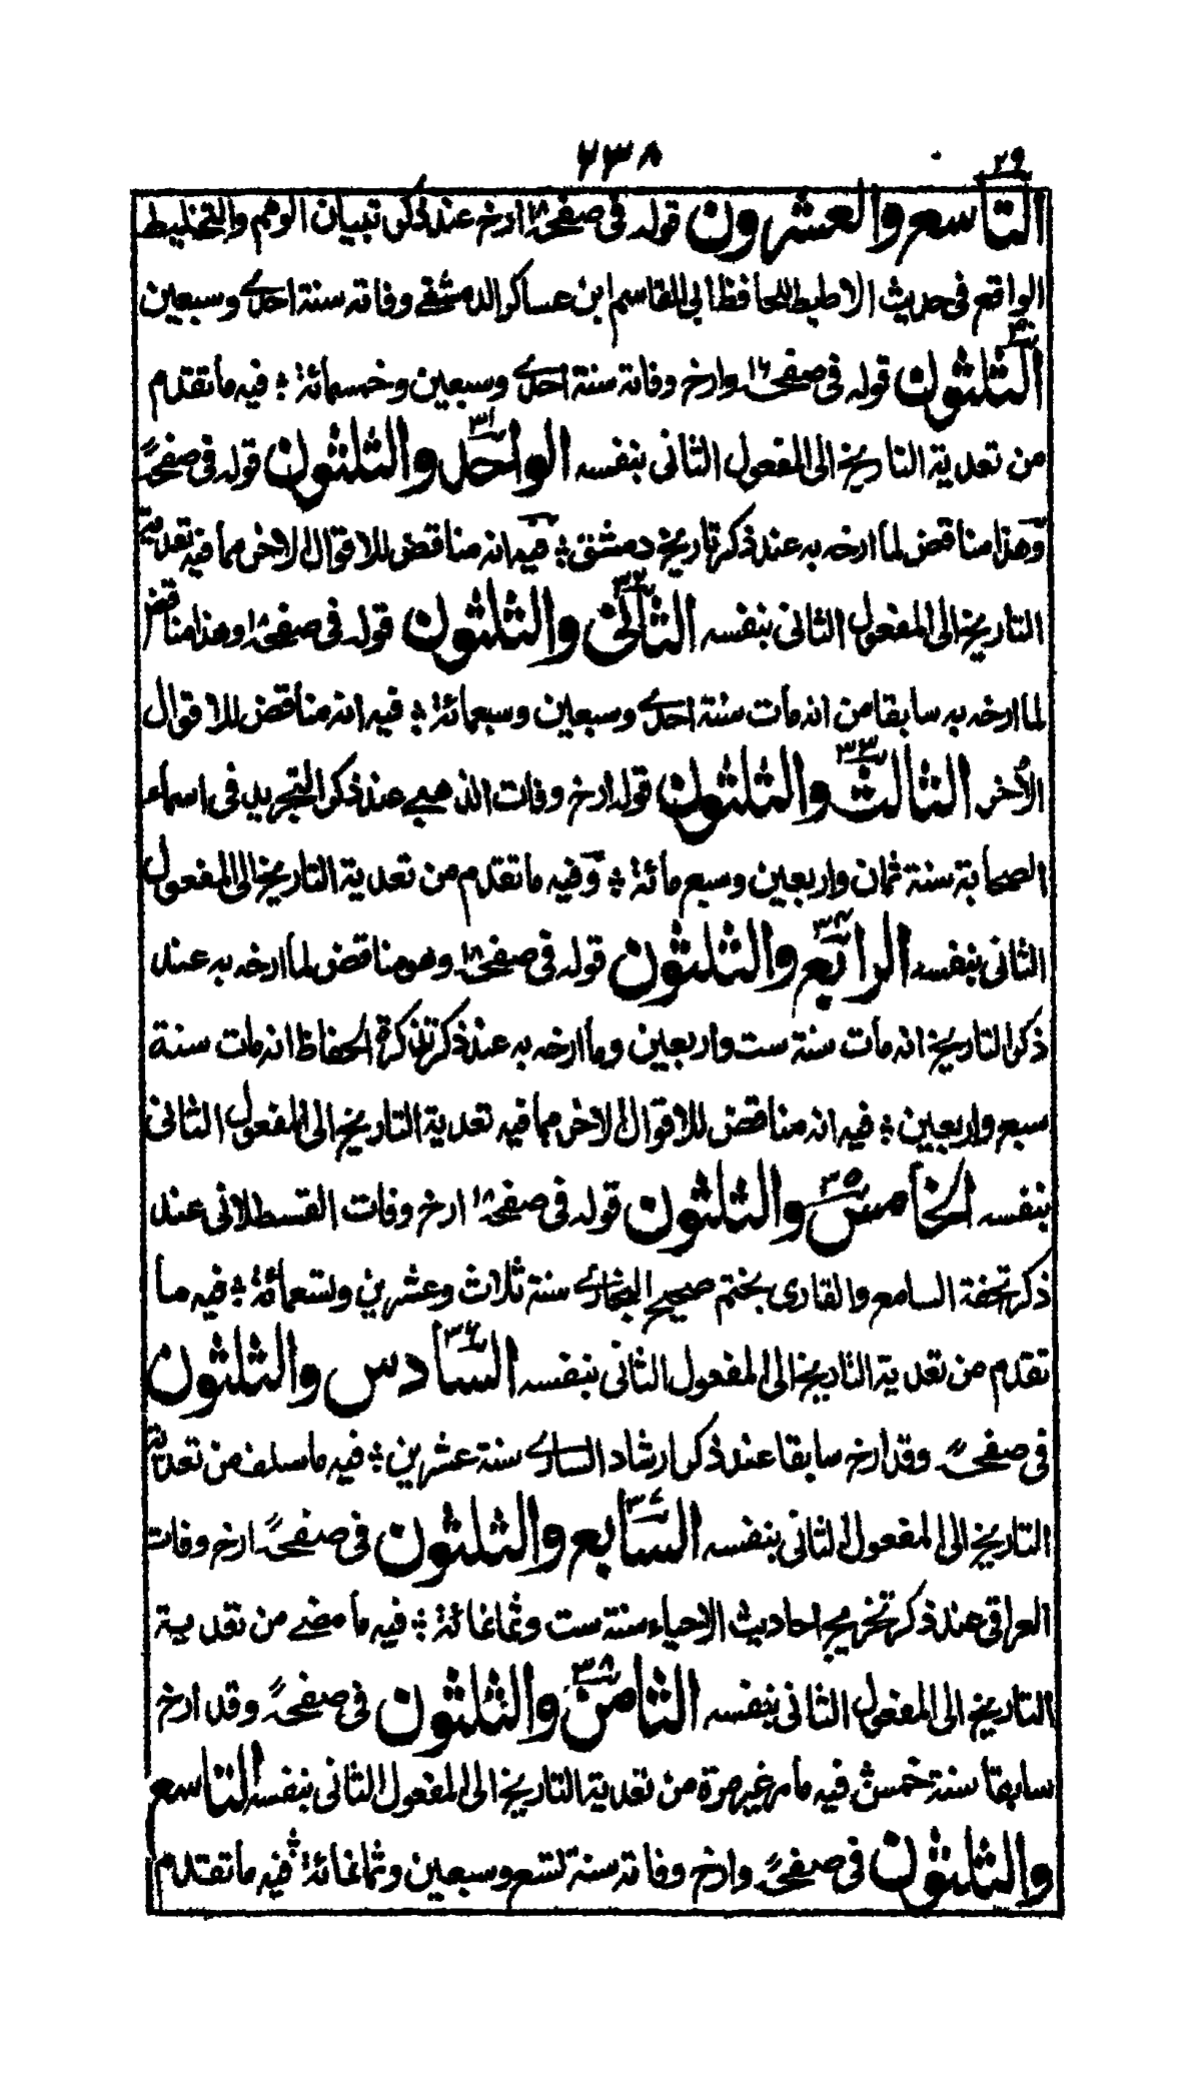 ٢٣٨
٢٩
التاسع والعشرون قوله فى صفحة١٨ ارخ عند ذكر تبيان الوهم والتخليط
الواقع فى حديث الاطيط للحافظ ابى القاسم ابن عساكر الدمشقے وفاته سنة احدے وسبعين
٣٠
الثلثون قوله فى صفحة١٦ وارخ وفاته سنة احدے وسبعين وخمسمائة ؛ فيه ما تقدم
من تعدية التاريخ الى المفعول الثانى بنفسه الواحد والثلثون ٣١ قوله فى صفحة
وهذا مناقض لما ارخه به عند ذكر تاريخ دمشق ؛ فيه انه مناقض للاقوال الاخر مما فيه تعدية
التاريخ الى المفعول الثانى بنفسه الثانى والثلثون ٣٢ قوله فى صفحة١٨ وهذا مناقض
لما ارخه به سابقا من انه مات سنة احدے وسبعين وسبعمائة ؛ فيه انه مناقض للاقوال
الأخر الثالث والثلثون ٣٣ قوله ارخ وفات الذهبے عند ذكر التجريد فى اسماء
الصحابة سنة ثمان واربعين وسبع مائة ؛ وفيه ما تقدم من تعدية التاريخ الى المفعول
الثانى بنفسه الرابع والثلثون ٣٤ قوله فى صفحة١٨ وهو مناقض لما ارخه به عند
ذكر التاريخ انه مات سنة ست واربعين وما ارخه به عند ذكر تذكرة الحفاظ انه مات سنة
سبع واربعين ؛ فيه انه مناقض للاقوال الاخر مما فيه تعدية التاريخ الى المفعول الثانى
بنفسه الخامس والثلثون ٣٥ قوله فى صفحة١٨ ارخ وفات القسطلانى عند
ذكر تحفة السامع والقارى بختم صحيح البخارے سنة ثلاث وعشرين وتسعمائة ؛ فيه ما
تقدم من تعدية التاريخ الى المفعول الثانى بنفسه السادس والثلثون ٣٦
فى صفحة وقد ارخ سابقا عند ذكر ارشاد السارے سنة عشرين ؛ فيه ما سلف من تعدية
التاريخ الى المفعول الثانى بنفسه السابع والثلثون ٣٧ فى صفحة ارخ وفات
العراقى عند ذكر تخريج احاديث الاحياء سنة ست وثمانمائة ؛ فيه ما مضے من تعدية
التاريخ الى المفعول الثانى بنفسه الثامن والثلثون ٣٨ فى صفحة وقد ارخ
سابقا سنة خمس فيه ما مر غير مرة من تعدية التاريخ الى المفعول الثانى بنفسه التاسع
والثلثون فى صفحة وارخ وفاته سنة تسع وسبعين وثمانمائة فيه ما تقدم